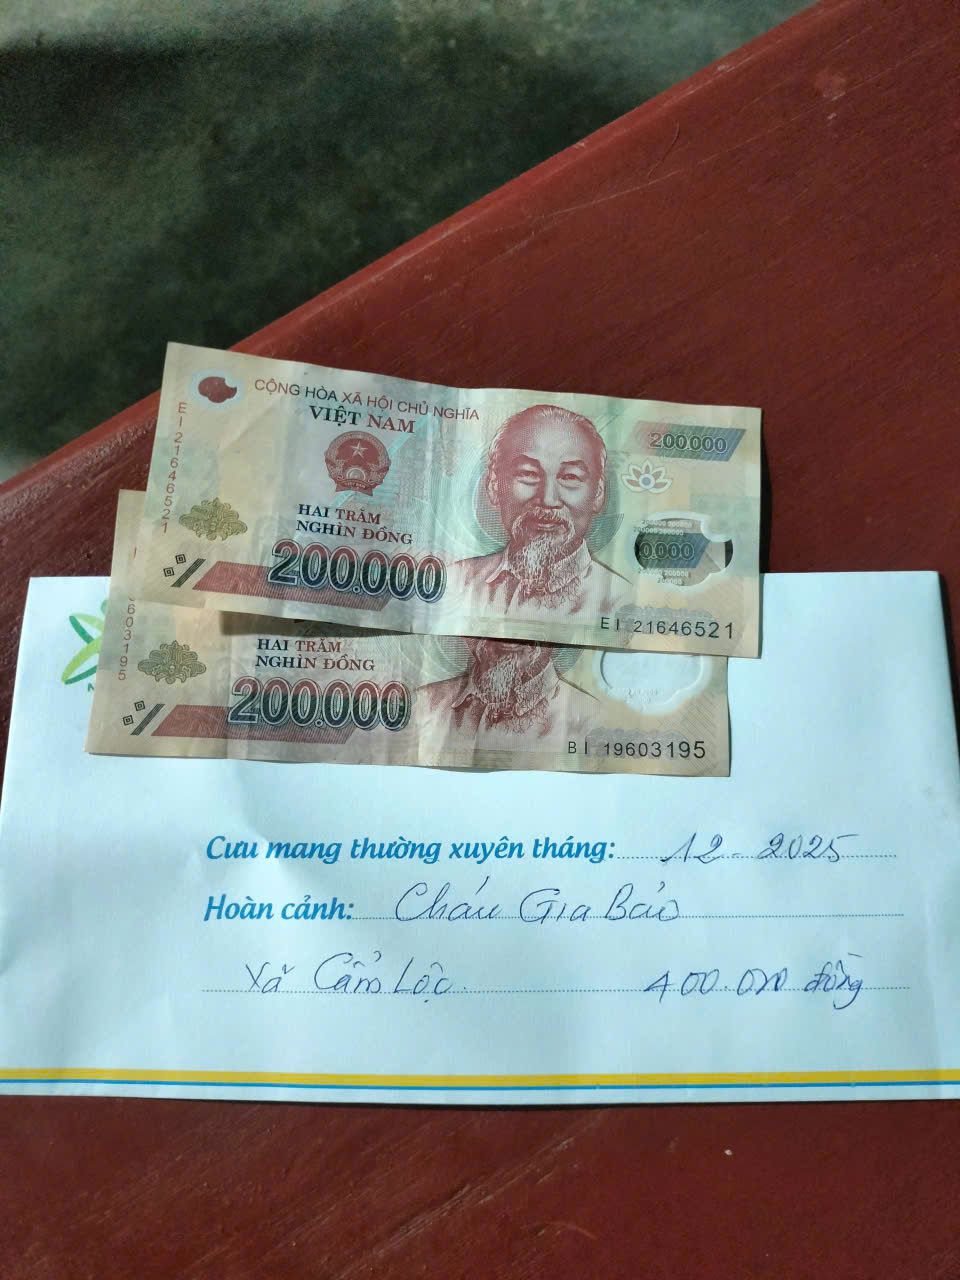 CỘNG HÒA XÃ HỘI CHỦ NGHĨA
VIỆT NAM
200.000
EI 21646521
HAI TRĂM
NGHÌN ĐỒNG
200.000
EI 21646521
HAI TRĂM
NGHÌN ĐỒNG
200.000
BI 19603195
Cưu mang thường xuyên tháng: 12 - 2025
Hoàn cảnh: Cháu Gia Bảo
Xã Cẩm Lộc. 400.000 đồng